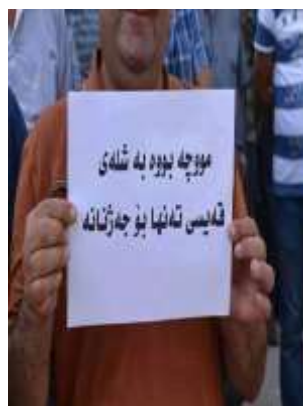 مووچە بووە بە شلەی
قەیسی تەنها بۆ جەژنانە